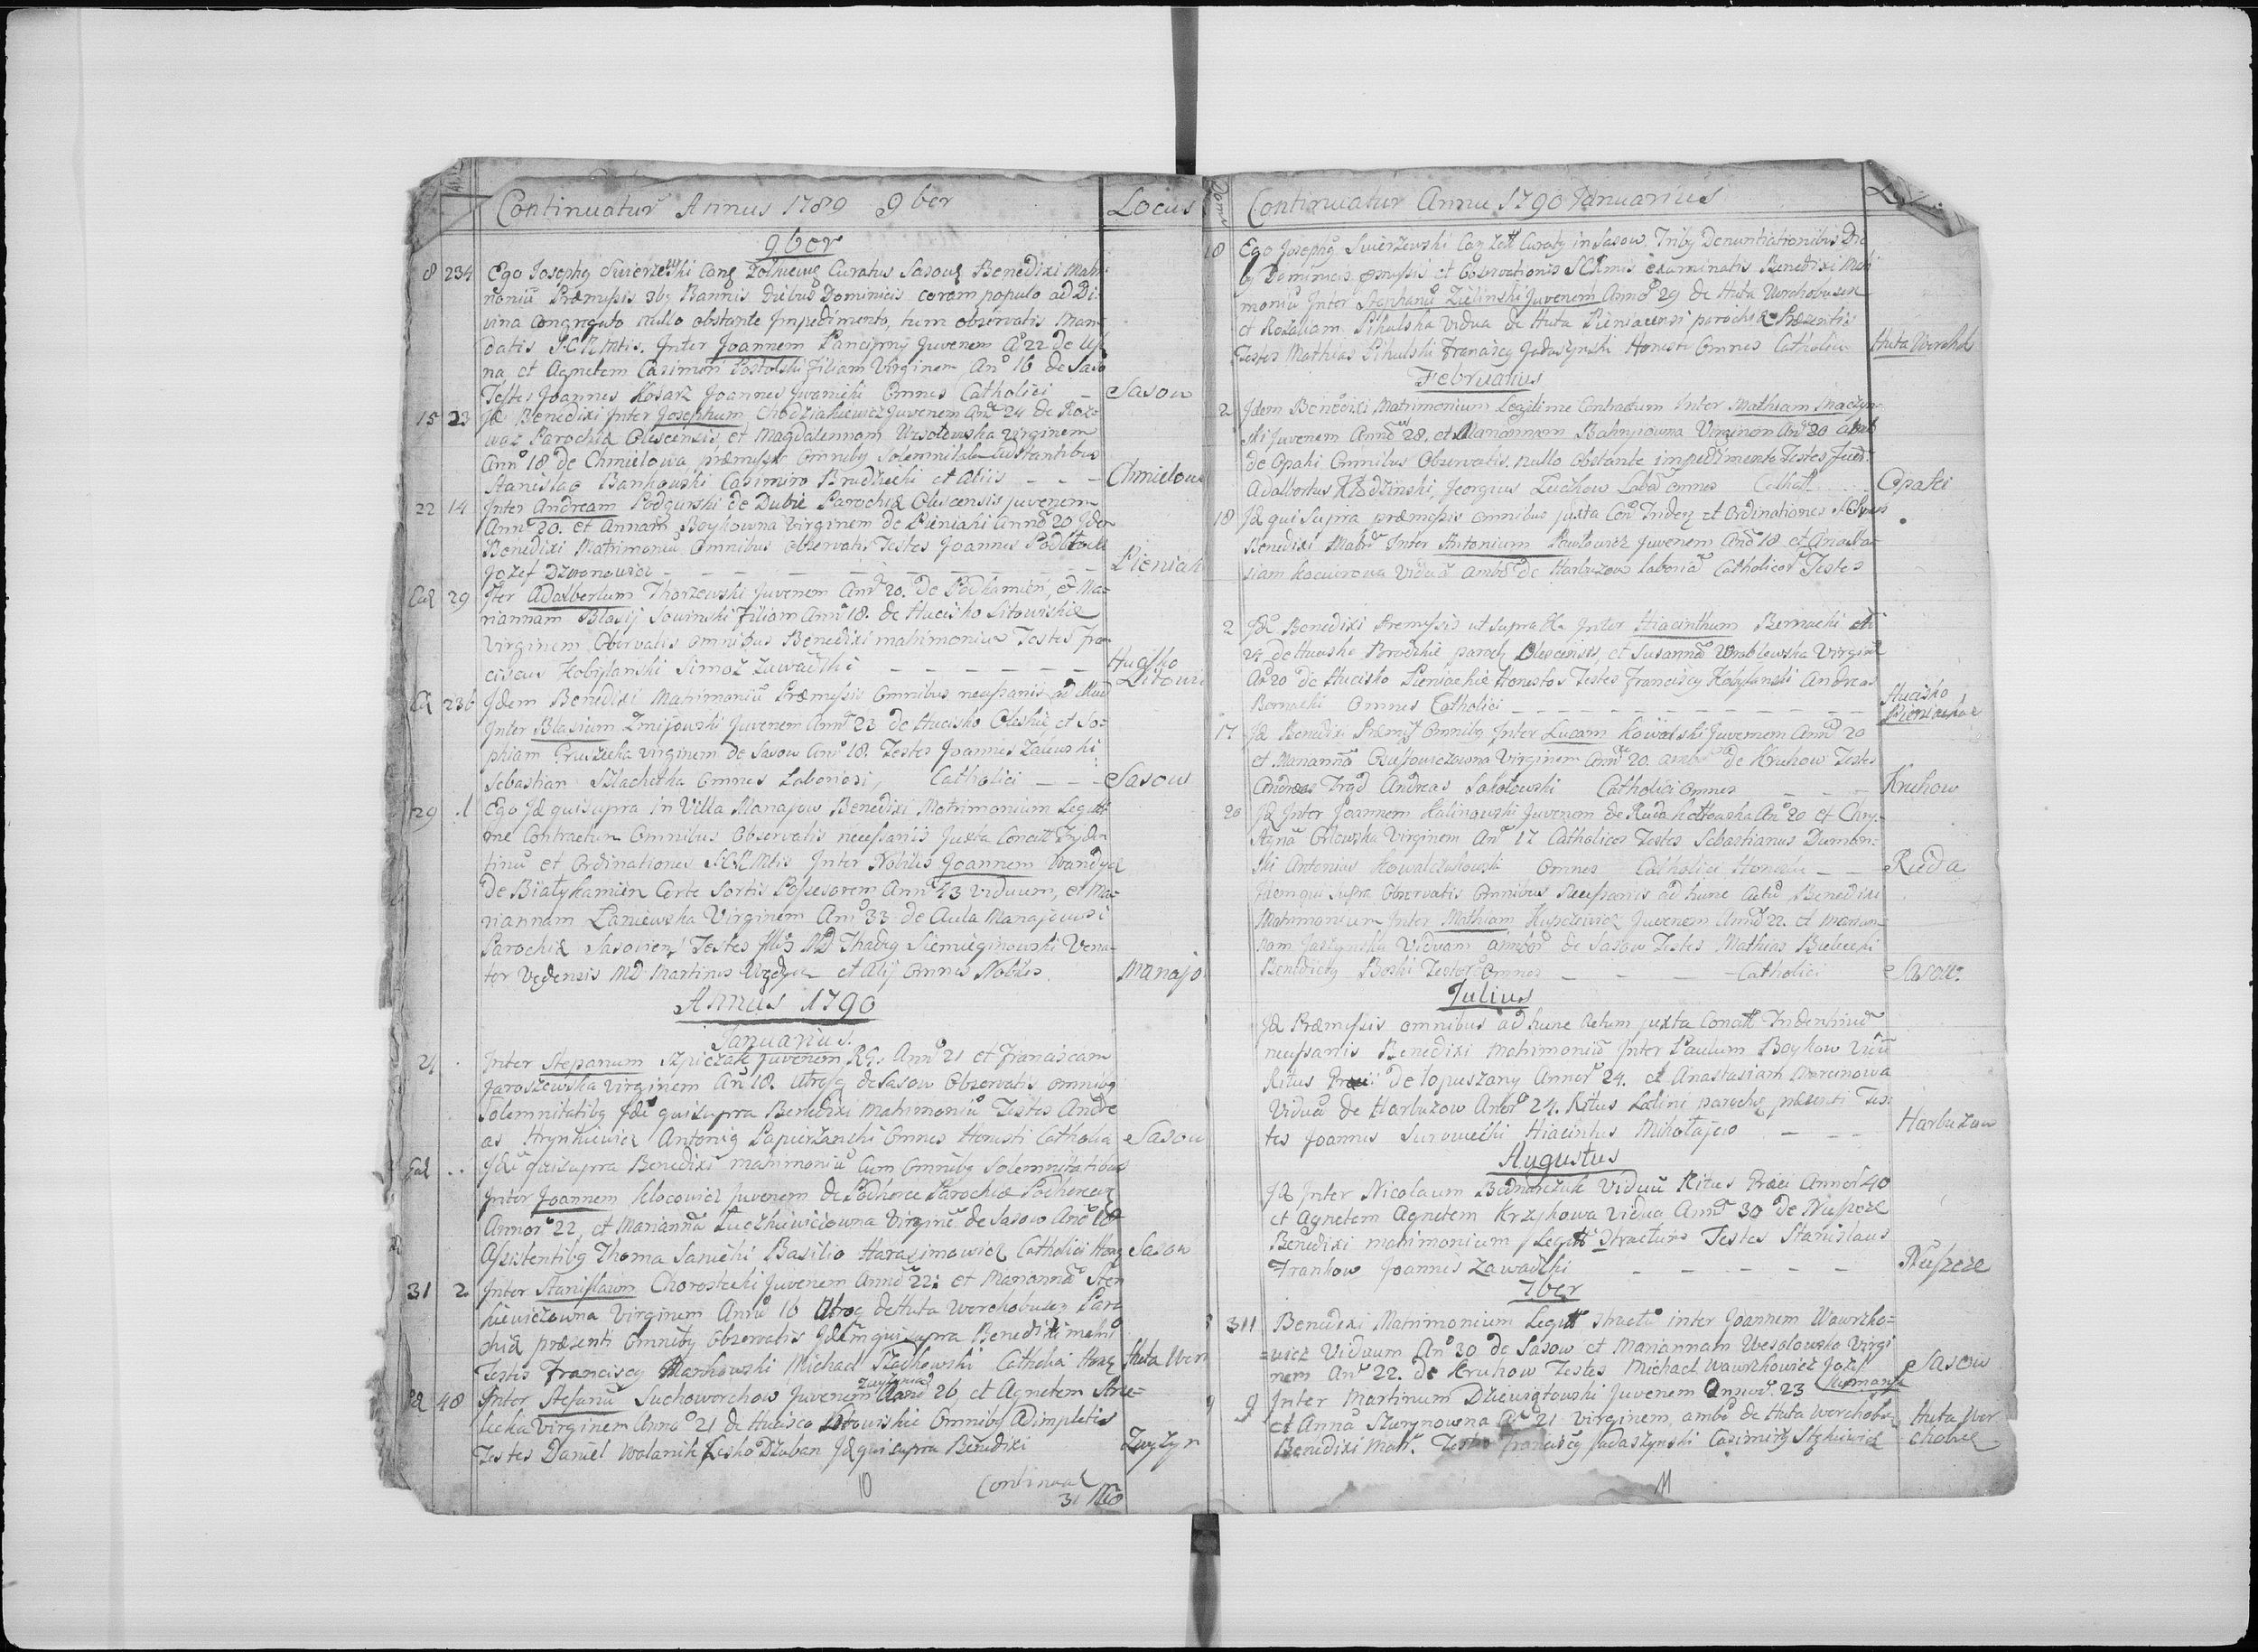 Continuatur Annus 1789 9ber Locus
9ber
8 234 Ego Josephg Swierzewski Cang Zolkiewg Curatus Sasowg Benedixi Matri-
moniu Præmissis 3bg Bannis diebus Dominicis coram populo ad Di-
vina congregato nullo obstante Impedimento, tum observatis Man-
datis S.C.R.Mtis. Inter Joannem Pancerny Juvenem Ao 22 de
na et Agnetem Casimiri Postolski Filiam Virginem Ano 16 de Saso
Testes Joannes Kosarz Joannes Iwanicki Omnes Catholici – Sasow
15 23 Id Benedixi Inter Josephum Chodziakiewicz Juvenem Anr 24 de Roz-
waz Parochiæ Olescensis et Magdalennam Wesołowska virginem
Anno 18 de Chmielowa præmissis omnibg Solemnitatibus
Stanislao Bankowski Casimiro Brudzicki et aliis – – – Chmielowa
22 14 Inter Andream Podgurski de Dubie Parochiæ Olescensis juvenem
Annr 20. et Annam Boykowna virginem de Pieniaki Anno 20 Idem
Benedixi Matrimoniu omnibus observatis Testes Joannes Podłtocki
Jozef Dzwonowicz – – – – – – – – Pieniak
Ead 29 Iter Adalbertum Thorzewski juvenem Annr 20. de Podkamien, et Ma-
riannam Blasij Sowinski Filiam Annr 18. de Hucisko Litowiskie
virginem Obervatis omnibus Benedixi matrimonium Testes Fran
ciscus Kobylanski Simoz Zawadzki – – – – – – Hucisko
Litowi
Ed 236 Idem Benedixi Matrimoniu Præmissis Omnibus necessariis ad
Inter Blasium Zmijowski Juvenem Annr 23 de Hucisko Oleskie, et So-
phiam Pruszecka virginem de Sasow Anr 18. Testes Joannes Zalewski
Sebastian Szlachetka omnes Laboriosi, Catholici – – – Sasow
29 1 Ego Id quisupra in Villa Manajow Benedixi Matrimonium Legitti-
me Contractum Omnibus Observatis necessariis Juxta Concill Tryden
tinu et Ordinationes S.C.R.Mtis Inter Nobiles Joannem Wandycz
de Białykamien Certe Sortis Possesorem Annr 43 viduum, et Ma-
riannam Łaniewska Virginem Anr 33 de Aula Manajowsi
Parochiæ Sasovien Testes MD Thadeg Siemieginowski Vena-
tor MD Martinus et Alij omnes Nobiles. Manajo
Annus 1790
Januarius.
24 Inter Stepanum Szpiczak juvenem RG. Anno 21 et Franciscam
Jaroszewska virginem An 18. utrosq de Sasow Observatis omnibg
Solemnitatibg Ide quisupra Benedixi Matrimoniu Testes Andre
as Hrynkiewicz Antonig Papierzanski Omnes Honesti Catholici Sasow
Ead Ide quisupra Benedixi matrimoniu Cum Omnibg Solemnitatibus
Inter Joannem Klocowicz juvenem de Podhorce Parochiæ Podhorcen
Annor 22, et Marianna Łuczkiewiciowna Virgine de Sasow Ano 18
Assistentibg Thoma Sanicki Basilio Harasimowicz Catholici Hong Sasow
31 2 Inter Stanislaum Chorostecki Juvenem Annor 22: et Marianna Sten
kiewiczowna virginem Anno 16 Utroq de Huta Werchobuscz Paro
chiæ præsenti Omnibg Observatis Idem quisupra Benedixi matri
Testes Franciscg Mankowski Michael Szadkowski Catholici Hong Huta Wer
Ed 48 Inter Stefanu Suchoworchow juvenem Zwyzynien Anno 26 et Agnetem Stru-
licka virginem Anno 21 de Hucisco Litowiskie Omnibg Adimpletis
Testes Daniel Wolanik Lesko Dzaban Id quisupra Benedixi Zwyzyn
10 Continuat
Continuatur Annu 1790 Januarius
18 Ego Josephg Swierzewski Can Zoll Curatg in Sasow, Tribg Denuntiationibus Die
bg Dominicis præmissis et Observationis S.C.R.mis examinatis Benedixi Matri
moniu Inter Stephanu Zielinski Juvenem Anno 29 de Huta Werchobuscz
et Rosaliam Pikulska Vidua de Huta Pieniacensi parochiæ Præsentis
Testes Mathias Pikulski Franciscg Jadaszynski Honesti Omnes Catholici Huta Werchob
Februarius
2 Idem Benedixi Matrimonium Legitime Contractum Inter Mathiam Snaczyn-
ski Juvenem Anno 28. et Mariannam Bahrynowna Virginem Anr 20
de Opaki Omnibus Observatis nullo obstante impedimento Testes
Adalbertus Kłodzinski, Jeorgius Łuczkow Labor omnes Cathol Opaki
18 Id qui Supra præmissis omnibus juxta Con Triden et Ordinationes S.C.R.mis
Benedixi Matr Inter Antonium Pawłowicz Juvenem Ano 18 et Anasta-
siam Kocurowa Vidua ambo de Harbuzow laborios Catholicor Testes
2 Ide Benedixi Premissis ut Supra Inter Hiacinthum Bernacki
24 de Hucisko Brodzkie paroch Olescensis et Susanna Wroblewska Virgine
Ao 20 de Hucisko Pieniackie Honestos Testes Franciscg Kobylanski Andreas
Bernacki Omnes Catholici – – – – – – – – Hucisko
Pieniackie
17 Id Benedixi Præmiss Omnibg Inter Lucam Kowalski Juvenem Anno 20
et Marianna Virginem Annr 20 ambo de Kruhow Testes
Andreas Andreas Sokołowski Catholici omnes – – – Kruhow
20 Id Inter Joannem Kalinowski Juvenem de Ruda Kołtowska Ano 20 et Chry-
stina Orłowska Virginem Anr 17 Catholicos Testes Sebastianus Duman-
ski Antonius Kowalczukowski Omnes Catholici Honesti – – Ruda
Idem qui Supra Observatis Omnibus Necessariis ad hunc Benedixi
Matrimonium Inter Mathiam Kupczewicz Juvenem Anno 22. et Marian-
nam Jaszynska Viduam ambor de Sasow Testes Mathias Bielecki
Benedictg Boski Testor Omnes – – – Catholici Sasow
Julius
Id Præmissis omnibus ad hunc Actum juxta Concill Tridentinu
necessariis Benedixi Matrimoniu Inter Paulum Boykow Vidu
Ritus Græci de Łopuszany Annor 24. et Anastasiam Marcinowa
Vidua de Harbuzow Annor 24. Ritus Latini parochiæ præsenti Tes
tes Joannes Surowiecki Hiacintus Mikołajew – – – Harbuzow
Augustus
Id Inter Nicolaum Bednarczuk Viduu Ritus Græci Annor 40
et Agnetem Agnetem Krzykowa Vidua Annor 30 de Nuszcze
Benedixi matrimonium Legitt Stractum Testes Stanislaus
Frankow Joannes Zawadski – – – – – – Nuszcze
7ber
311 Benedixi Matrimonium Legitt Stractu inter Joannem Wawrzko-
=wicz Viduum Ano 30 de Sasow et Mariannam Wesolowska Virgi
nem Anr 22. de Kruhow Testes Michael Wawrzkowicz Jozef Sasow
9 Inter Martinum Dziewiątowski Juvenem Annor 23
et Anna Szwynowna Ar 21 virginem, ambo de Huta Werchobu- Huta Wer
Benedixi Matr. Testes Franciscg Jadaszynski Casimirg Stękiewicz chobuz
11